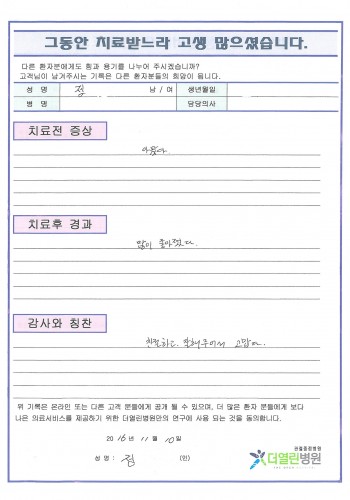 그동안 치료받느라 고생 많으셨습니다.
다른 환자분에게도 힘과 용기를 나누어 주시겠습니까?
고객님이 남겨주시는 기록은 다른 환자분들의 희망이 됩니다.
성 명 정 남 / 여 생년월일
병 명 담당의사
치료전 증상
아팠다.
치료후 경과
많이 좋아졌다.
감사와 칭찬
친절하고 잘해주어서 고맙다.
위 기록은 온라인 또는 다른 고객 분들에게 공개 될 수 있으며, 더 많은 환자 분들에게 보다
나은 의료서비스를 제공하기 위한 더열린병원만의 연구에 사용 되는 것을 동의합니다.
2016년 11월 10일
성 명 : 정 (인)
관절종합병원
더열린병원